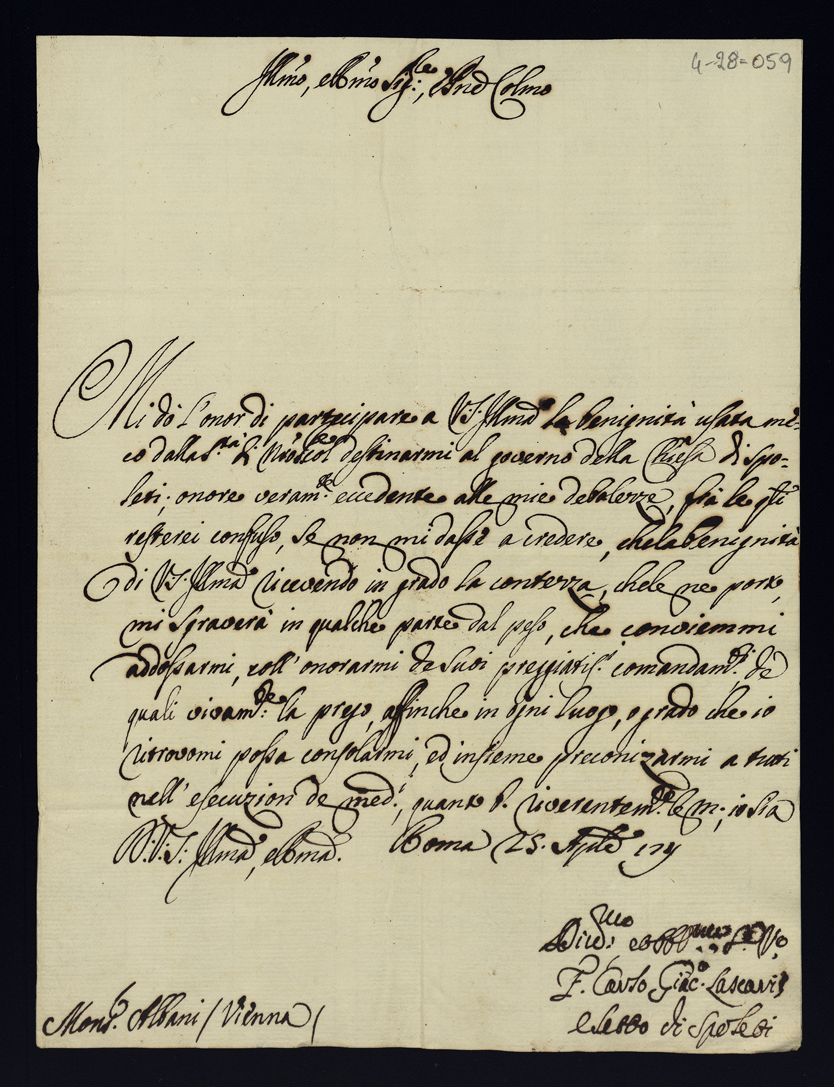 4-28-059
Illmo, e Rmo Sig:re, Pne Colmo
Mi dò l'onor di partecipare a V.S. Illma la benignità usata me-
co dalla S.tà di Nro Sig.re col destinarmi al governo della Chiesa di Spo-
leti; onore veram.te eccedente alle mie debolezze, frà le q.li
resterei confuso, se non mi dasse a credere, che la benignità
di V.S. Illma ricevendo in grado la contezza, che le ne porto,
mi sgraverà in qualche parte dal peso, che conviemmi
addossarmi, coll'onorarmi de suoi preggiatis.i comandam.ti, de
quali vivam.te la prego, affinche in ogni luogo, o grado che io
ritrovomi possa consolarmi, ed insieme preconizarmi a tutti
nell'esecuzion de med.i, quanto riverentem.te le m; io sia
D. V.S. Illma, e Rma. Roma 25. Aprle
Div.mo e obblmo
F. Carlo Giac.o Lascaris
eletto di Spoleti
Mons.r Albani / Vienna /